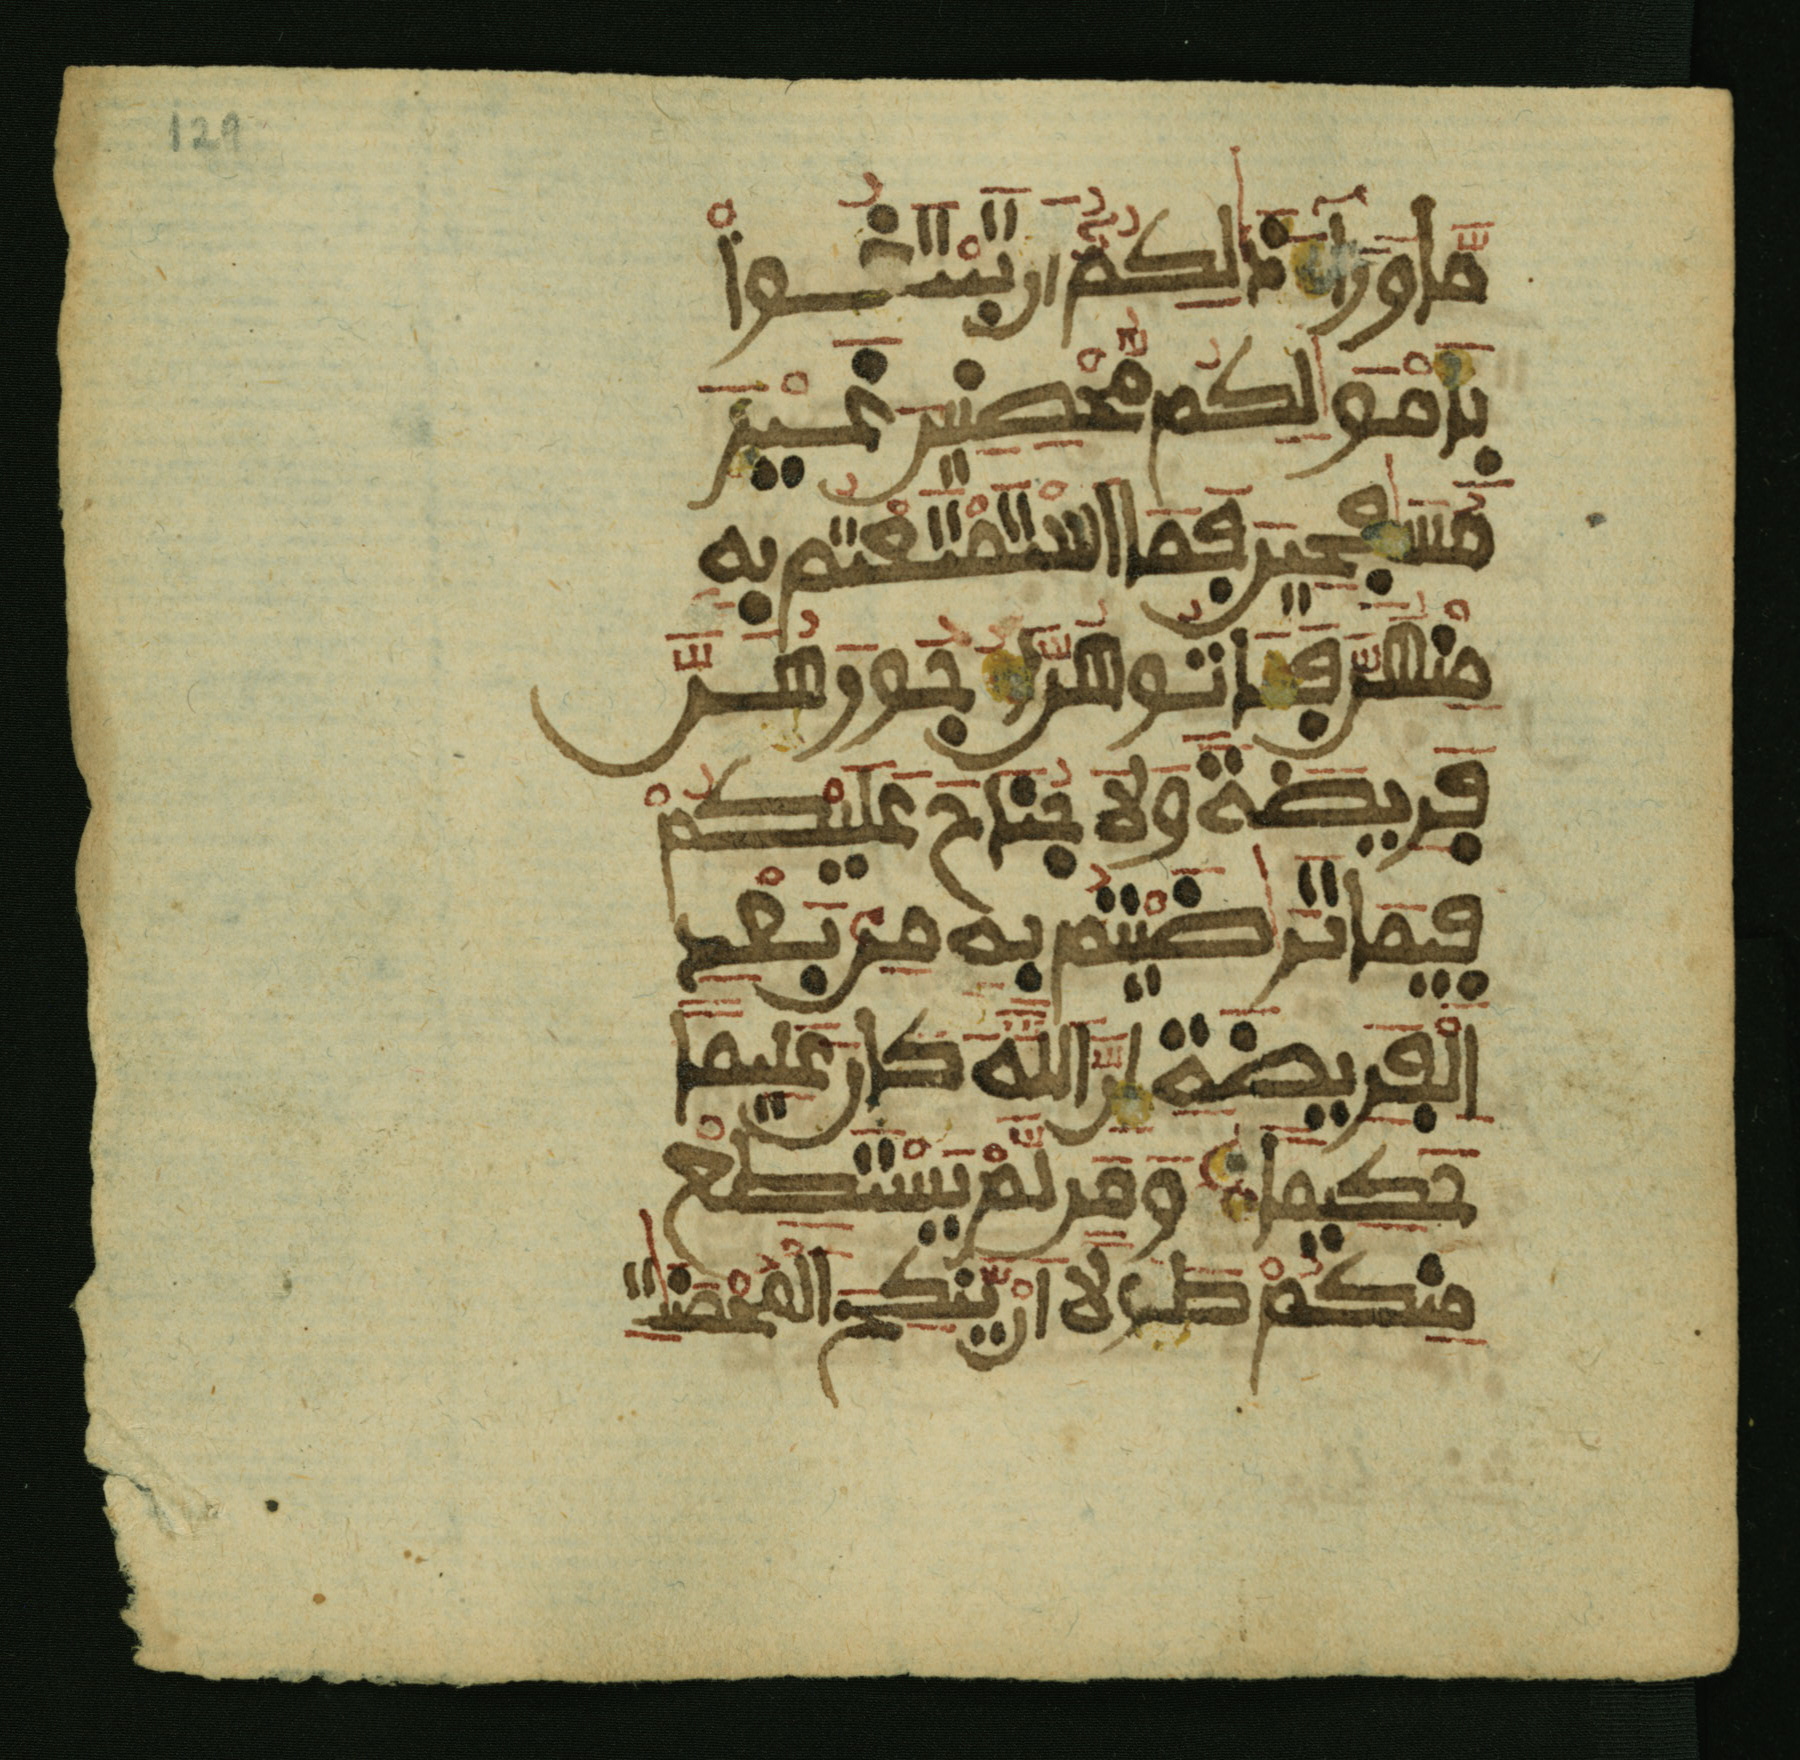 129
مَّا وَرَآءَ ذَٰلِكُمُۥٓ أَن تَبْتَغُواْ
بِأَمْوَٰلِكُم مُّحْصِنِينَ غَيْرَ
مُسَٰفِحِينَ فَمَا اَسْتَمْتَعْتُم بِهِ
مِنْهُنَّ فَـَٔاتُوهُنَّ أُجُورَهُنَّ
فَرِيضَةً وَلَا جُنَاحَ عَلَيْكُمْ
فِيمَا تَرَٰضَيْتُم بِهِ مِنۢ بَعْدِ
اِلْفَرِيضَةِ إِنَّ اَللَّهَ كَانَ عَلِيماً
حَكِيماً وَمَن لَّمْ يَسْتَطِعْ
مِنكُمْ طَوْلًا أَنْ يَّنكِحَ اَلْمُحْصَنَٰتِ